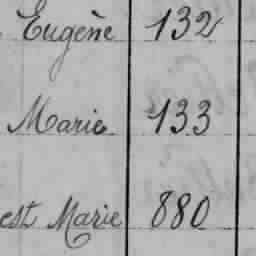 Eugène 132
Marie 133
est Marie 880